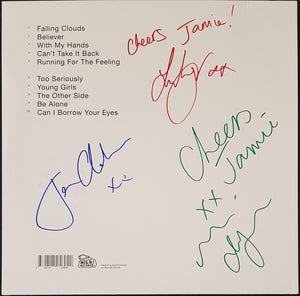 Falling Clouds
Believer
With My Hands
Can't Take It Back
Running For The Feeling
Too Seriously
Young Girls
The Other Side
Be Alone
Can I Borrow Your Eyes
Cheers Jamie!
xx
Cheers
Jamie
xx
xx
MILK